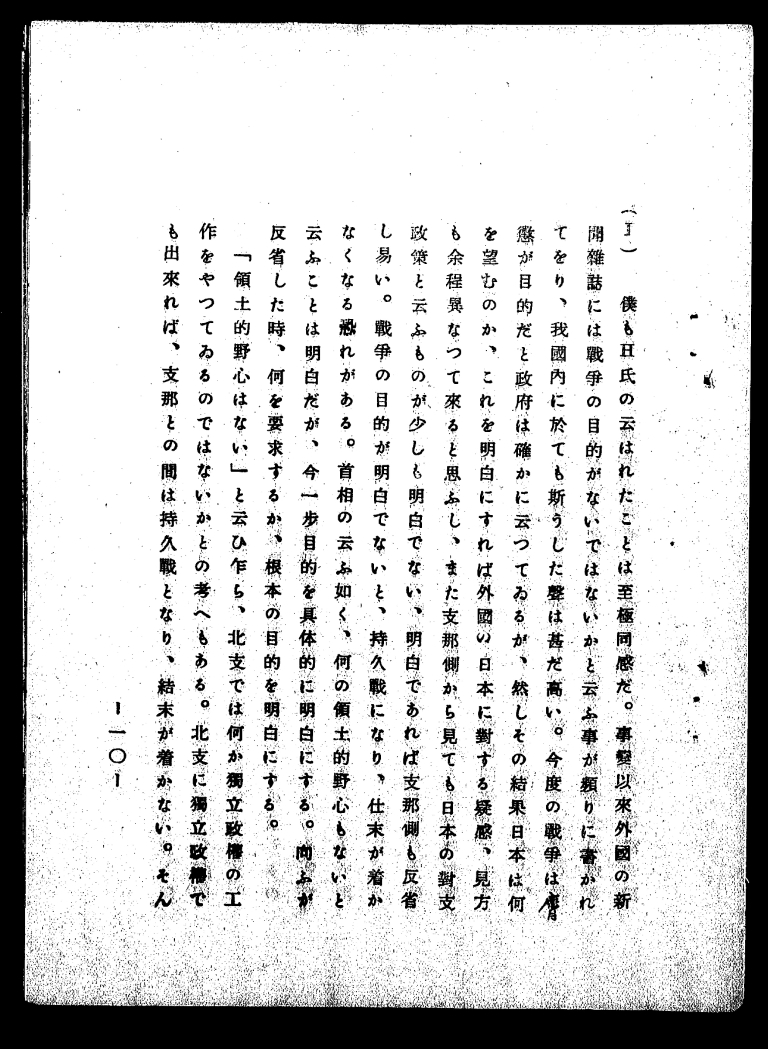 (I)　僕もH氏の云はれたことは至極同感だ。事變以來外國の新
聞雜誌には戰爭の目的がないではないかと云ふ事が頻りに書かれ
てをり、我國內に於ても斯うした聲は甚だ高い。今度の戰爭は膺
懲が目的だと政府は確かに云つてゐるが、然しその結果日本は何
を望むのか、これを明白にすれば外國の日本に對する疑惑、見方
も余程異なつて來ると思ふし、また支那側から見ても日本の對支
政策と云ふものが少しも明白でない、明白であれば支那側も反省
し易い。戰爭の目的が明白でないと、持久戰になり、仕末が着か
なくなる恐れがある。首相の云ふ如く、何の領土的野心もないと
云ふことは明白だが、今一步目的を具体的に明白にする。向ふが
反省した時、何を要求するか、根本の目的を明白にする。
「領土的野心はない」と云ひ乍ら、北支では何か獨立政權の工
作をやつてゐるのではないかとの考へもある。北支に獨立政權で
も出來れば、支那との間は持久戰となり、結末が着かない。そん
ー一〇ー